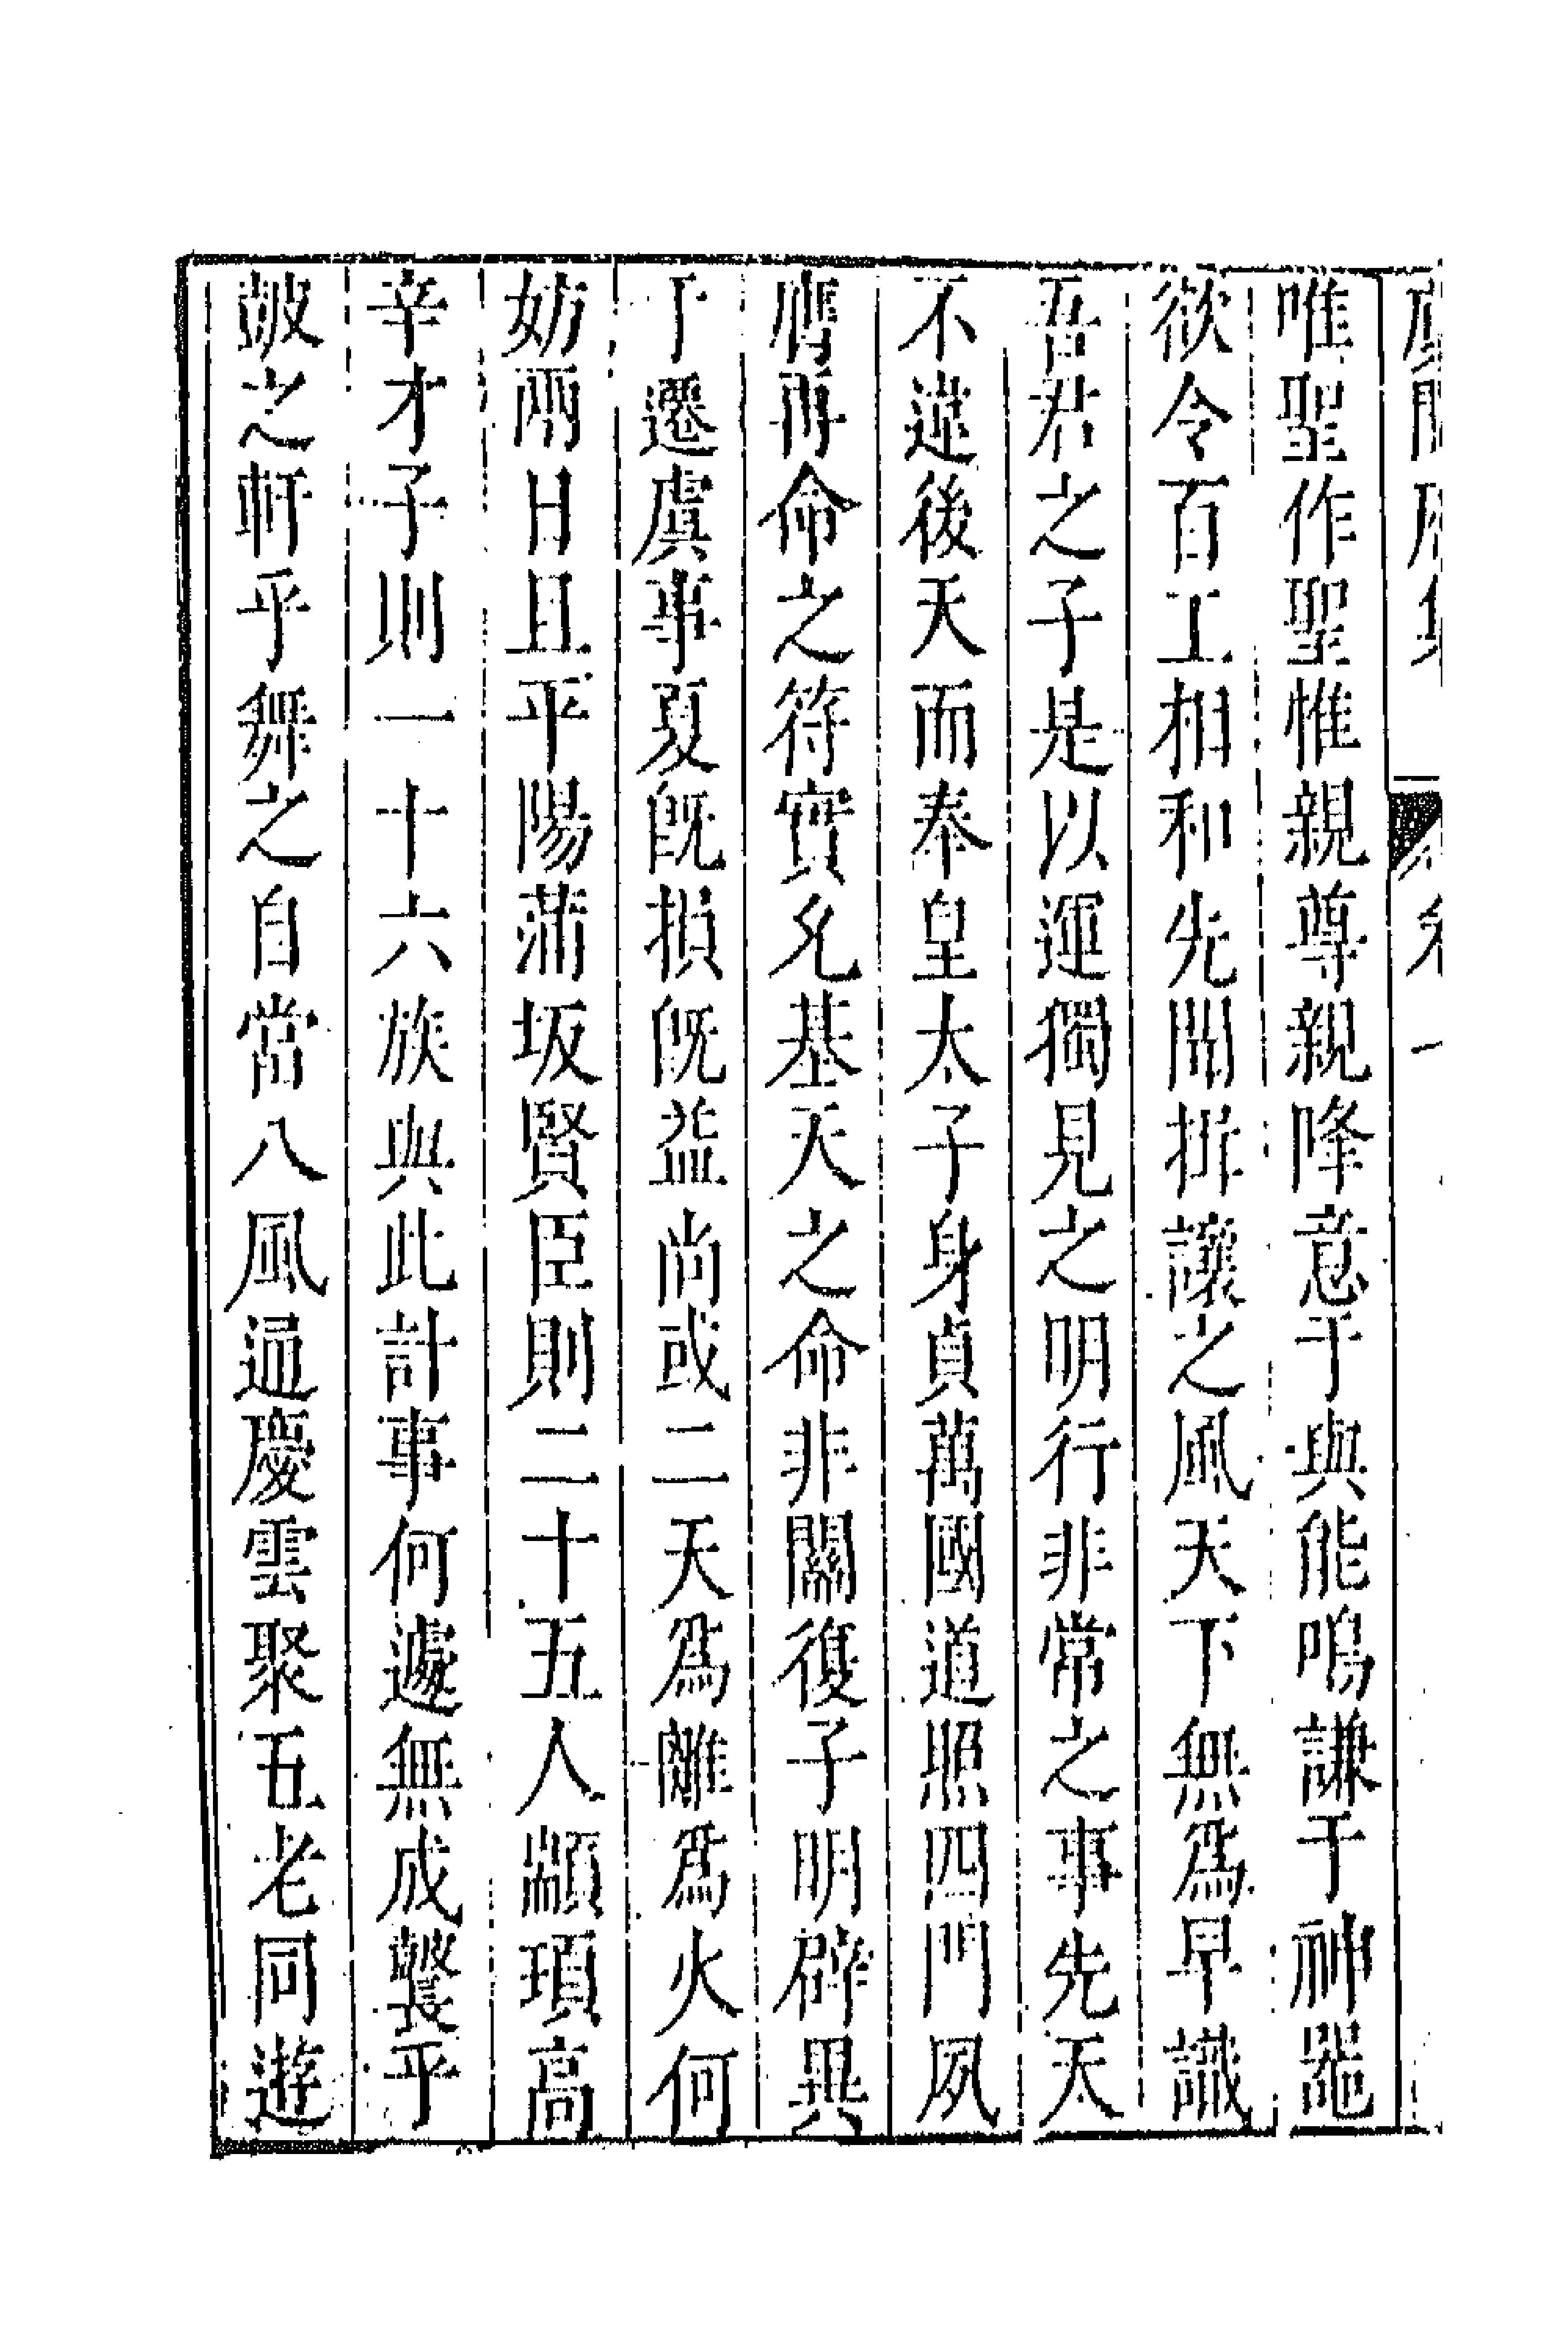 唯聖作聖惟親尊親降意于與能鳴謙于神器
欲令百工相和先開揖讓之風天下無爲早識
吾君之子是以運獨見之明行非常之事先天
不違後天而奉皇太子身貞萬國道照四門夙
膺再命之符實允基天之命非關復子明辟異
于遷虞事夏旣損旣益尚或二天爲離爲火何
妨兩日且平陽蒲坂賢臣則二十五人顓頊高
辛才子則一十六族與此計事何遽無成鼚乎
皷之軒乎舞之自當八風通慶雲聚五老同遊